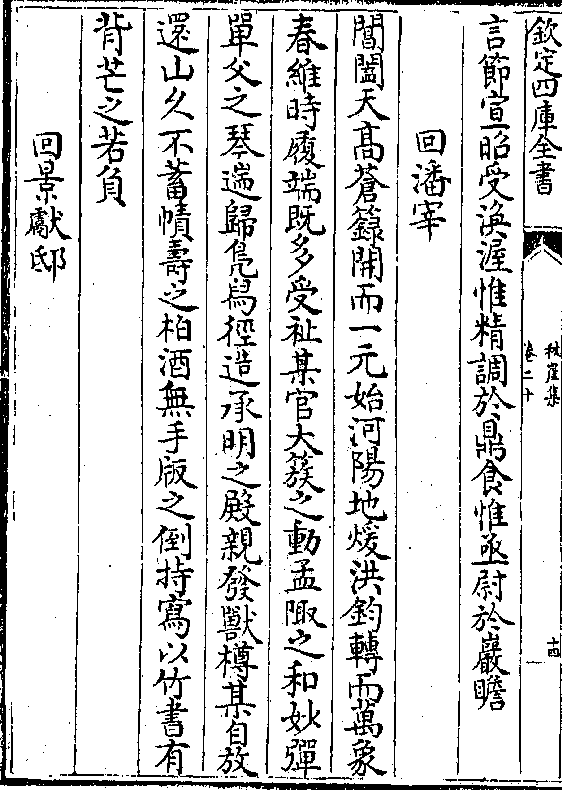 欽定四庫全書
秋崖集
卷二十
十四
言節宣昭受渙渥惟精調於鼎食惟亟尉於巖瞻
回潘宰
閶闔天髙蒼籙開而一元始河陽地煖洪鈞轉而萬象
春維時履端既多受祉某官大簇之動孟陬之和妙彈
單父之琴遄歸鳬舄徑造承明之殿親發獸樽某自放
還山久不蓄幘壽之柏酒無手版之倒持寫以竹書有
背芒之若負
回景獻邸